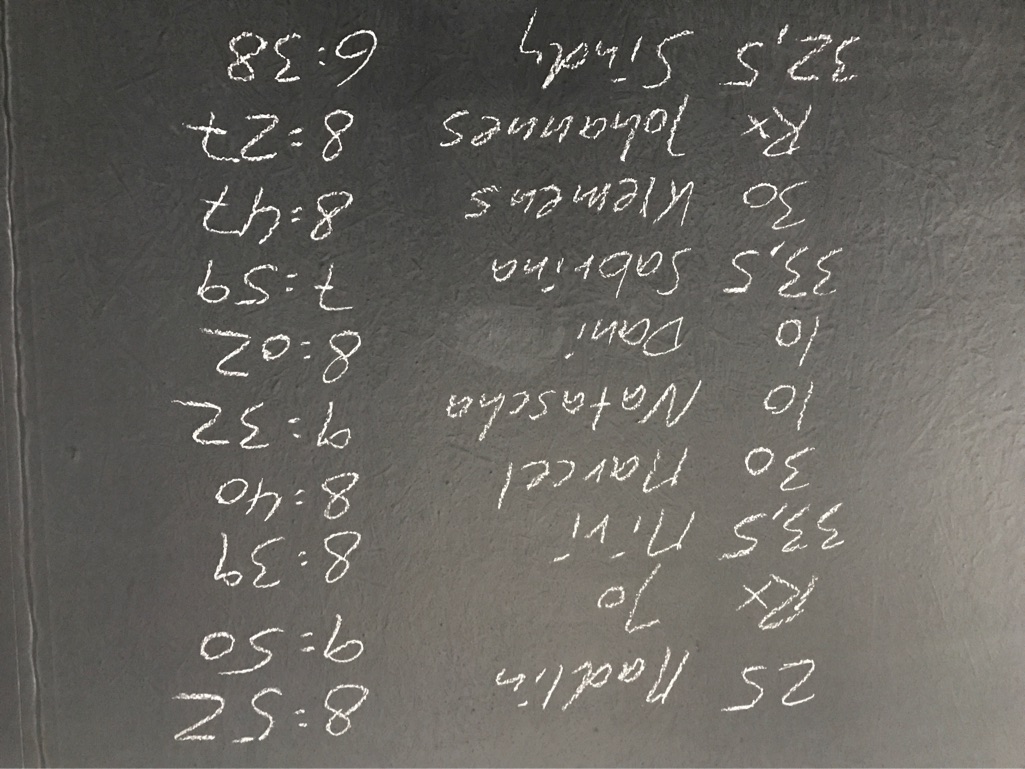 25 Madlin 8:52
Rx Jo 9:50
33,5 Miri 8:39
30 Marcel 8:40
10 Natascha 9:32
10 Dani 8:02
33,5 Sabrina 7:59
30 Klemens 8:47
Rx Johannes 8:27
32,5 Sindy 6:38